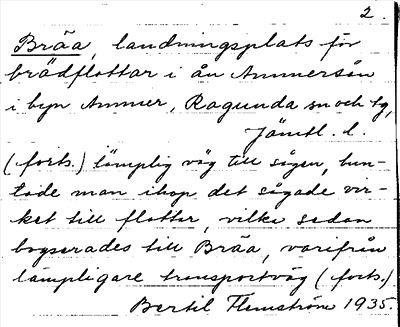 2.
Bråa, landningsplats för
brädflottar i ån Ammerån
i byn Ammer, Ragunda sn och tg,
Jämtl. l.
(forts.) lämplig väg till sågen, bun-
tade man ihop det sågade vir-
ket till flottar, vilka sedan
bogserades till Bråa, varifrån
lämpligare transportväg (forts.)
Bertil Flemström 1935